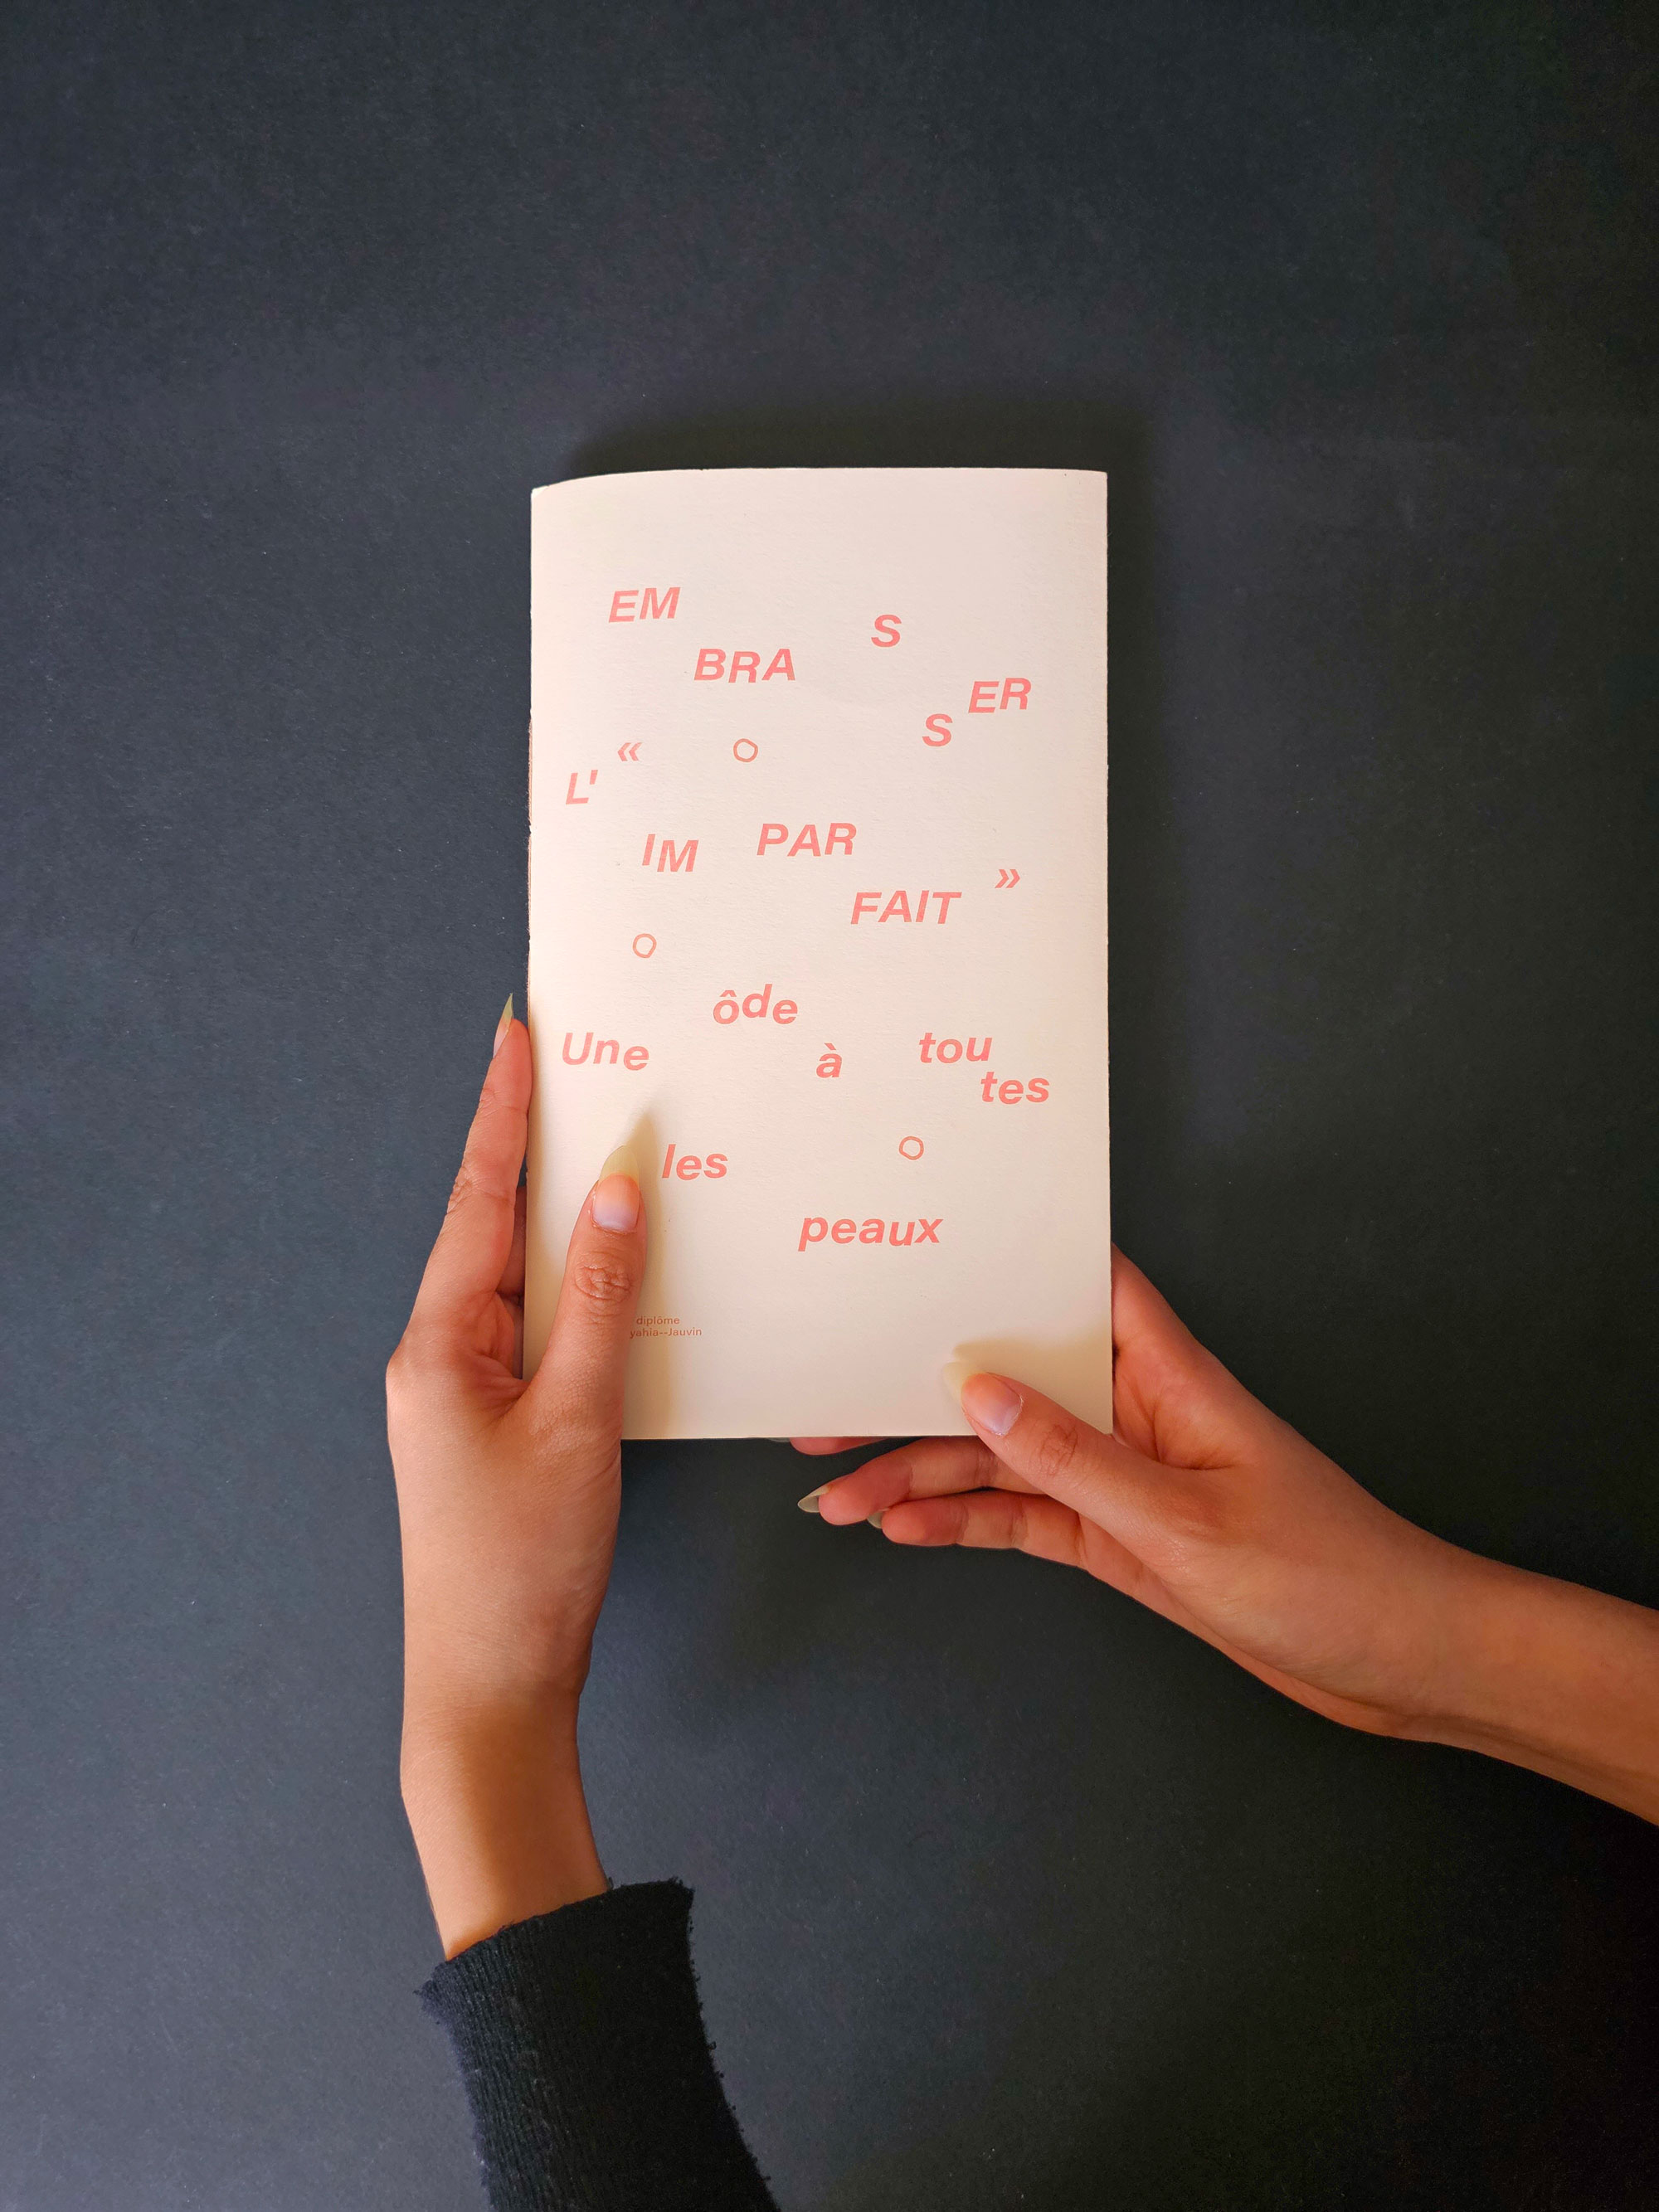 EM
BRA
S
S
ER
L'
«
IM
PAR
FAIT
»
Une
ôde
à
tou
tes
les
peaux
diplôme
yahia--Jauvin